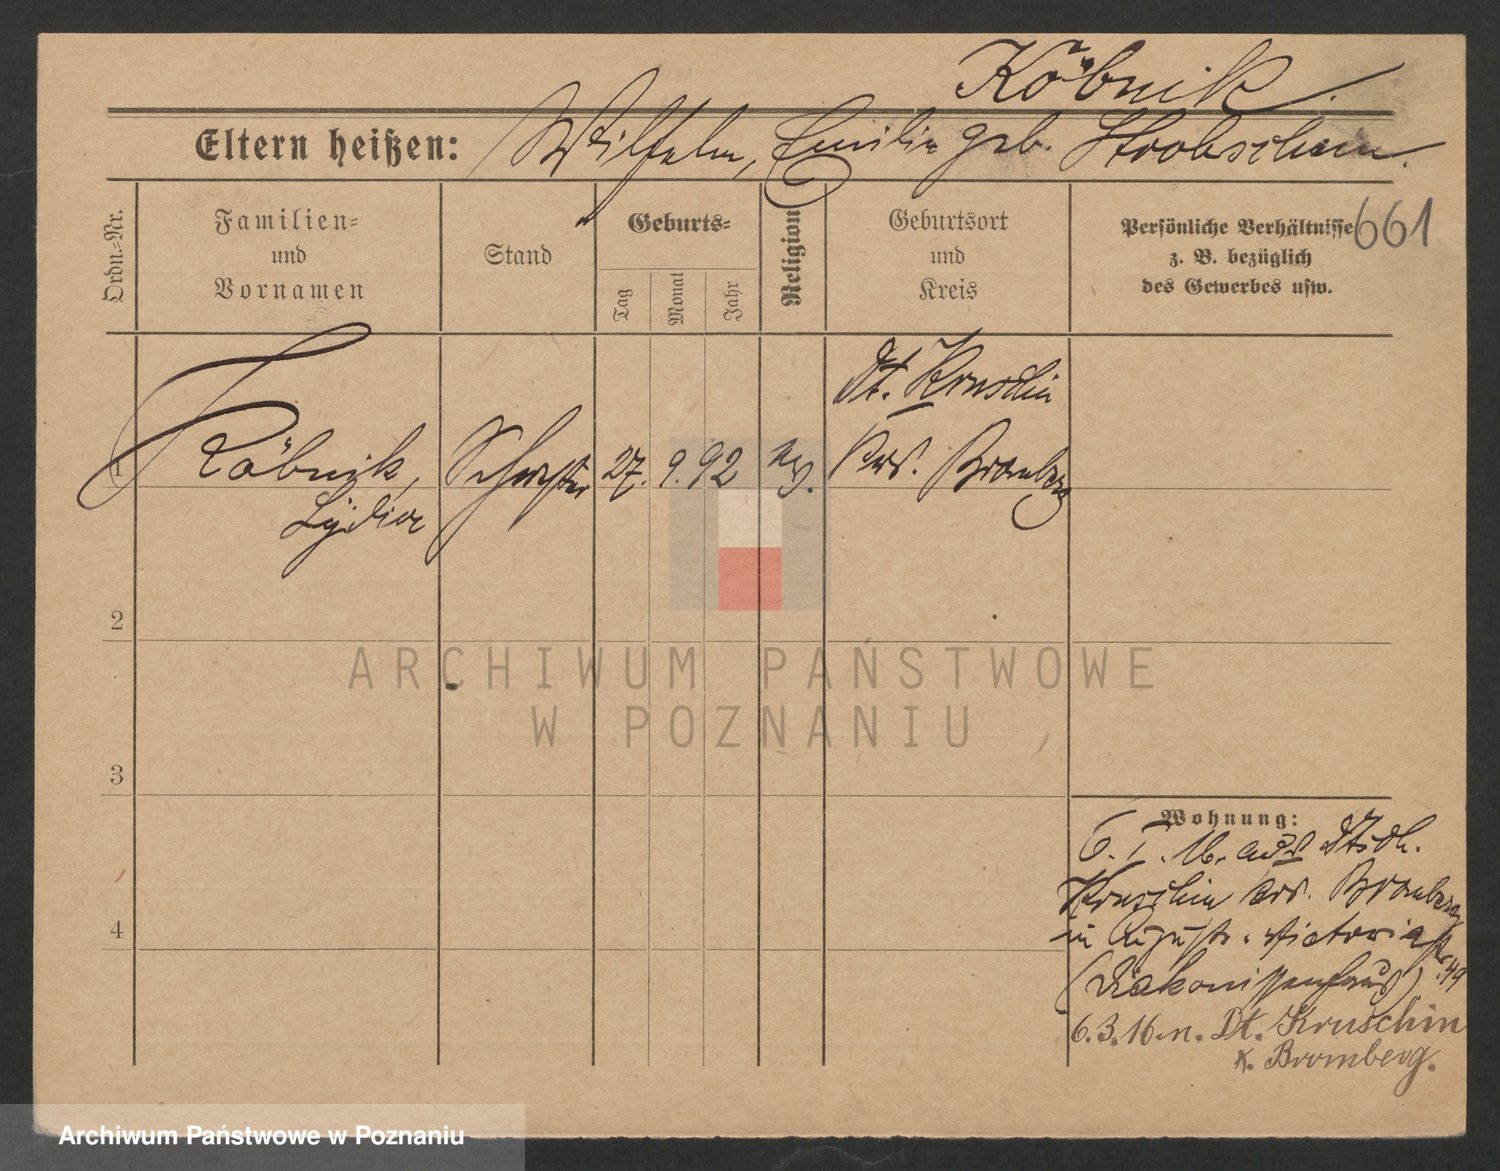 Köbnik.
Eltern heißen: Wilhelm, Emilie geb. Strobschein.
661
Ordn.=Nr.
Familien=
und
Vornamen
Stand
Geburts=
Tag
Monat
Jahr
Religion
Geburtsort
und
Kreis
Persönliche Verhältnisse
z. B. bezüglich
des Gewerbes usw.
Dt. Kruschin
1 Köbnik, Schwester 27. 9. 92 ev. Krs. Bromberg
Lydia
2
3
4
Wohnung:
6. I. 16. aus Dtsch.
Kruschin Krs. Bromberg
in Auguste-Victoriastr. 49
(Diakonissenhaus)
6.3.16 n. Dt. Kruschin
K. Bromberg.
ARCHIWUM PAŃSTWOWE
W POZNANIU
Archiwum Państwowe w Poznaniu